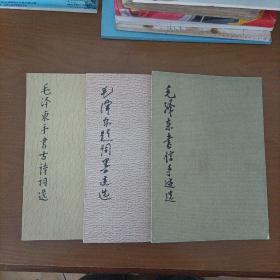 毛泽东手书古诗词选
毛泽东题词墨迹选
毛泽东书信手迹选